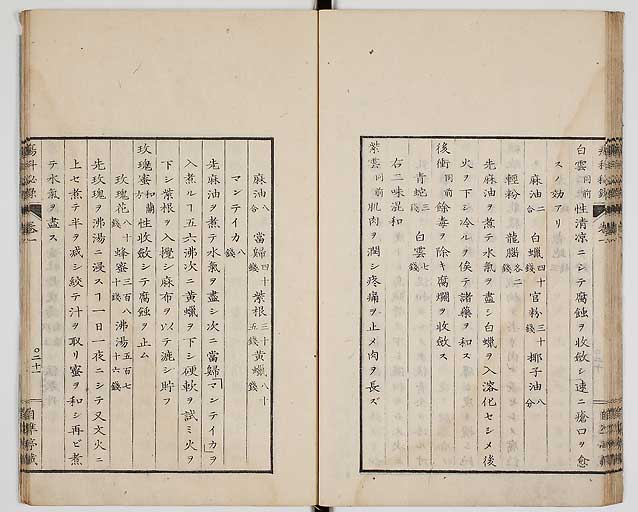 白雲同前性清凉ニシテ腐蝕ヲ收斂シ速ニ瘡口ヲ愈
スノ効アリ
麻油二合 白蠟四十錢 官粉三十錢 椰子油八分
輕粉 龍腦各二錢
先麻油ヲ煮テ水氣ヲ盡シ白蠟ヲ入溶化セシメ後
火ヲ下シ冷ルヲ俟テ諸藥ヲ和ス
後衝同前餘毒ヲ除キ腐爛ヲ收斂ス
青蛇三錢 白雲七錢
右二味混和
紫雲同前肌肉ヲ潤シ疼痛ヲ止メ肉ヲ長ズ
麻油八合 當歸四十錢 紫根三十五錢 黃蠟八十錢
マンテイカ八錢
先麻油ヲ煮テ水氣ヲ盡シ次ニ當歸「マンテイカ」ヲ
入煮ルヿ五六沸次ニ黃蠟ヲ下シ硬軟ヲ試ミ火ヲ
下シ紫根ヲ入攪シ麻布ヲ以テ漉シ時ヲ
玫瑰蜜和蘭方性收斂シテ腐蝕ヲ止ム
玫瑰花八十錢 蜂蜜三百八十錢 沸湯五百七十六錢
先玫瑰ヲ沸湯ニ浸スヿ一日一夜ニシテ又文火ニ
上セ煮テ半ヲ減シ絞テ汁ヲ取リ蜜ヲ和シ再ビ煮
テ水氣ヲ盡ス
瘍科祕錄 卷一 〇二十一 自準亭藏